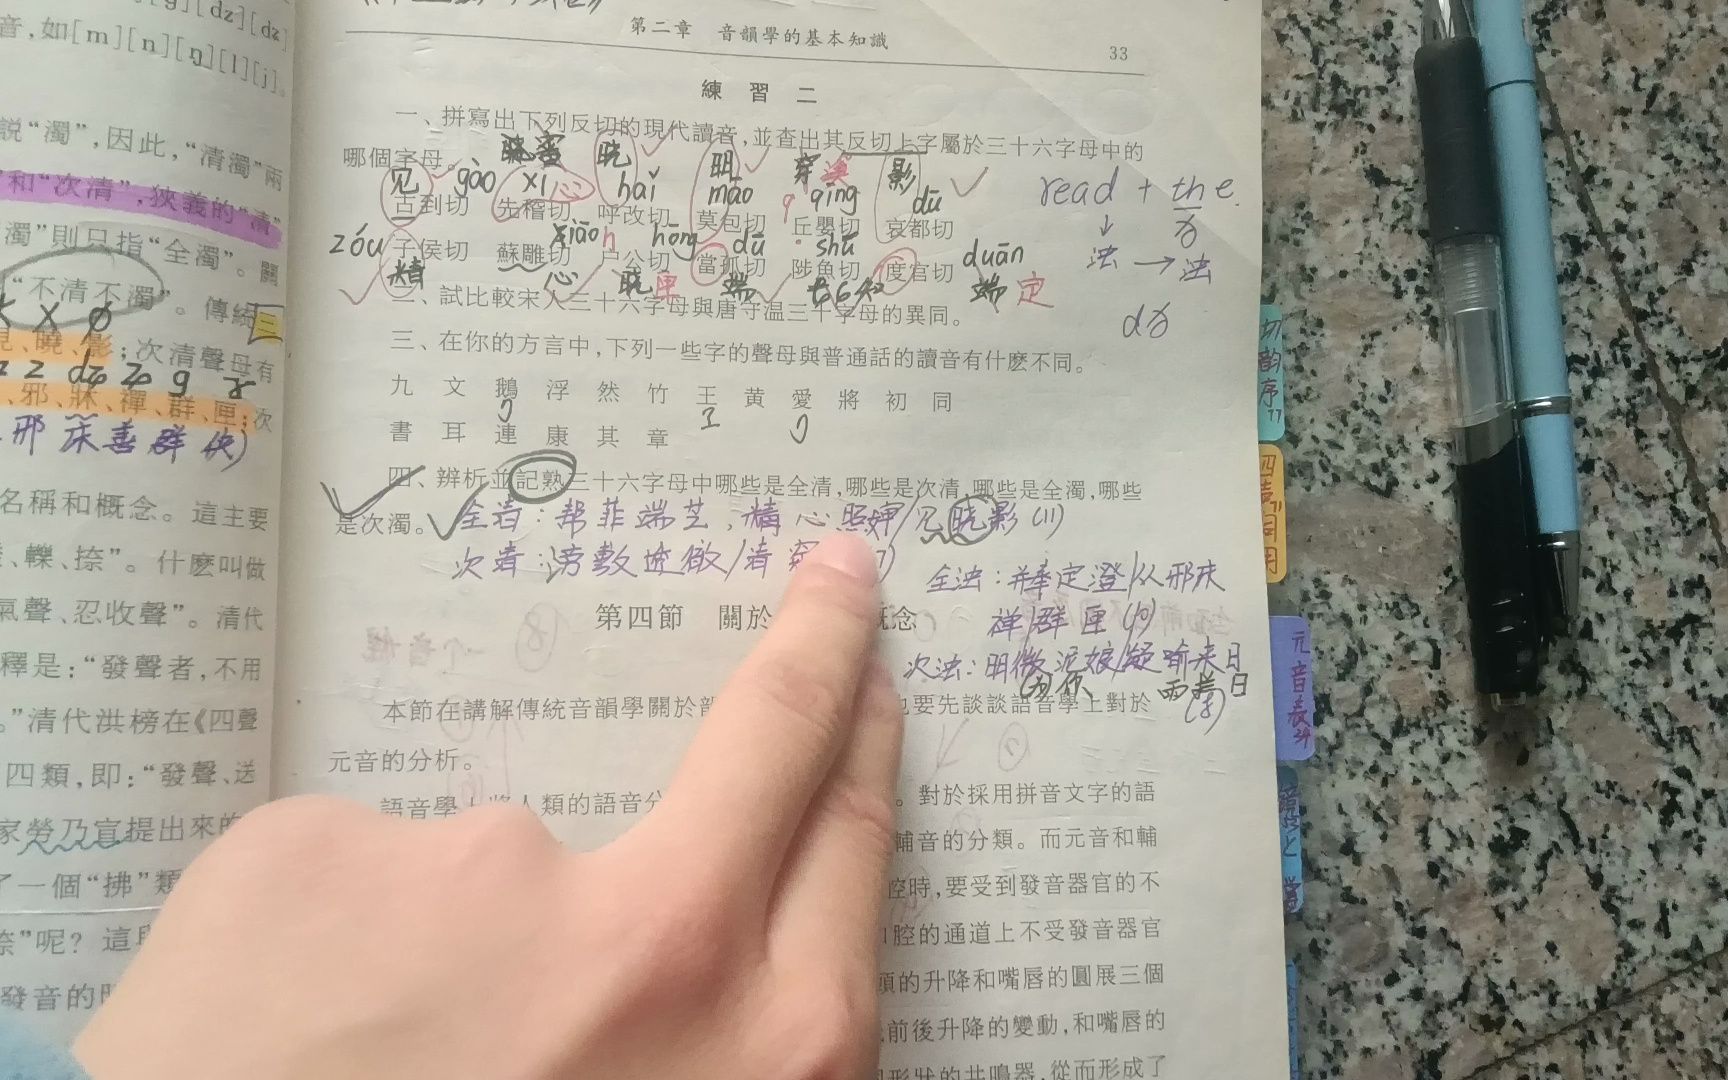 [dz][dʑ]
音,如[m][n][ŋ][l][j]。
説“濁”,因此,“清濁”兩
和“次清”,狹義的“清”
濁”則只指“全濁”。關
“不清不濁”。傳統
三
見、曉、影;次清聲母有
邪、牀、禪、群、匣;次
邪 床 善 群 俠)
名稱和概念。這主要
、轢、捺”。什麽叫做
氣聲、忍收聲”。清代
釋是:“發聲者,不用
。”清代洪榜在《四聲
四類,即:“發聲、送
家勞乃宣提出來的
了一個“拂”類
捺”呢?
發音的
第二章 音韻學的基本知識 33
練習二
一、拼寫出下列反切的現代讀音,並查出其反切上字屬於三十六字母中的
哪個字母。
见 gào xī 心 晓 hǎi 明 māo 穿 溪 qīng 影 dū
古到切 先稽切 呼改切 莫包切 丘嬰切 哀都切
zóu xiāo hōng dū shū duān
子侯切 蘇雕切 户公切 當孤切 陟魚切 度官切
精 心 晓 匣 端 知 端 定
read + the
法 → 法
二、試比較宋人三十六字母與唐守温三十字母的異同。
三、在你的方言中,下列一些字的聲母與普通話的讀音有什麽不同。
九 文 鵝 浮 然 竹 王 黄 愛 將 初 同
書 耳 連 康 其 章
四、辨析並記熟三十六字母中哪些是全清,哪些是次清,哪些是全濁,哪些
是次濁。
全清:帮菲端芝,精心照婶/见晓影(11)
次清:滂敷透徹/清
全法:並奉定澄/从邪床
禅/群匣(10)
次法:明微泥娘/疑喻来日
第四節 關於 概念
本節在講解傳統音韻學關於韻 也要先談談語音學上對於
元音的分析。
語音學上將人類的語音分 。對於採用拼音文字的語
輔音的分類。而元音和輔
腔時,要受到發音器官的不
口腔的通道上不受發音器官
頭的升降和嘴唇的圓展三個
前後升降的變動,和嘴唇的
形狀的共鳴器,從而形成了
切韵序77
四声71同用
元音表34